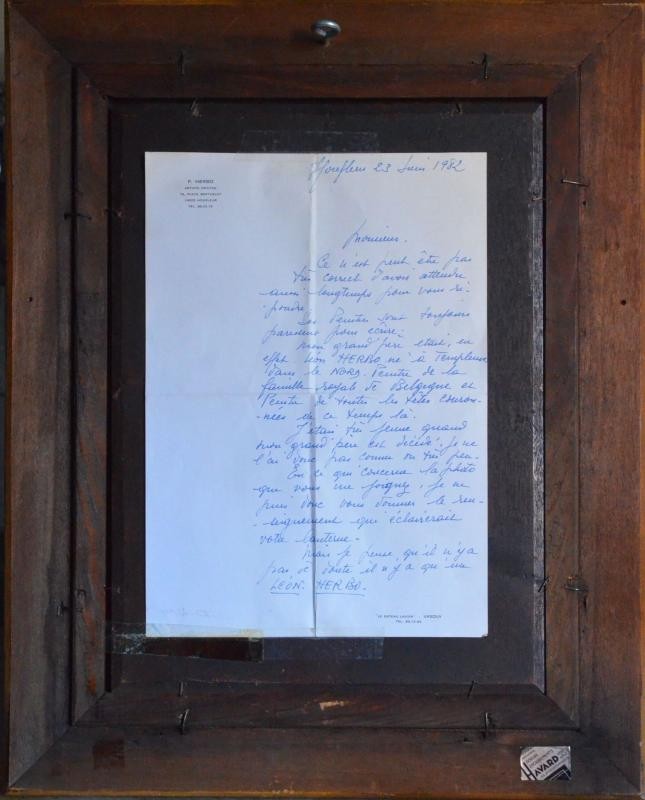 P. HERBO
ARTISTE PEINTRE
14600 HONFLEUR
Honfleur 23 Juin 1982
Monsieur.
Ce n'est peut être pas
très correct d'avoir attendu
aussi longtemps pour vous ré-
pondre.
Les Peintres sont toujours
paresseux pour écrire.
Mon grand'père était en
effet Léon HERBO né à Templeuve
dans le NORD. Peintre de la
famille royale de Belgique et
Peintre de toutes les têtes couron-
nées de ce temps là.
J'étais très jeune quand
mon grand'père est décédé, je ne
l'ai donc pas connu ou très peu.
En ce qui concerne la photo
que vous me joignez, je ne
puis donc vous donner le ren-
seignement qui éclairerait
votre lanterne.
Mais je pense qu'il n'y a
pas de doute il n'y a qu'un
LÉON HERBO.
"LE BATEAU LAVOIR" VASOUY
HAVARD